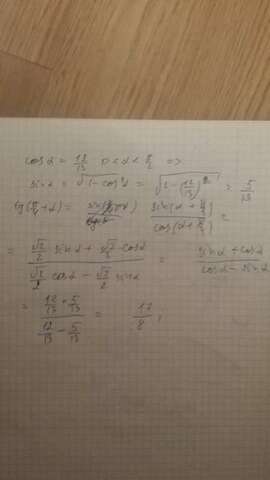 cos α = 12/13 0 < α < π/2 =>
sin α = √(1 - cos²α) = √(1 - (12/13)²) = 5/13
tg(π/4 + α) = sin(α + π/4) / cos(α + π/4) =
= (√2/2 sin α + √2/2 cos α) / (√2/2 cos α - √2/2 sin α) = (sin α + cos α) / (cos α - sin α)
= (12/13 + 5/13) / (12/13 - 5/13) = 17/8